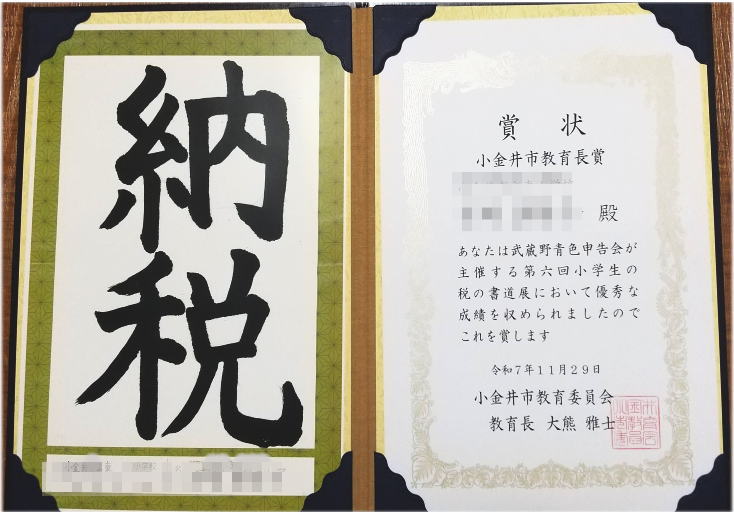 納税
賞状
小金井市教育長賞
殿
あなたは武蔵野青色申告会が
主催する第六回小学生の
税の書道展において優秀な
成績を収められましたので
これを賞します
令和7年11月29日
小金井市教育委員会
教育長 大熊 雅士